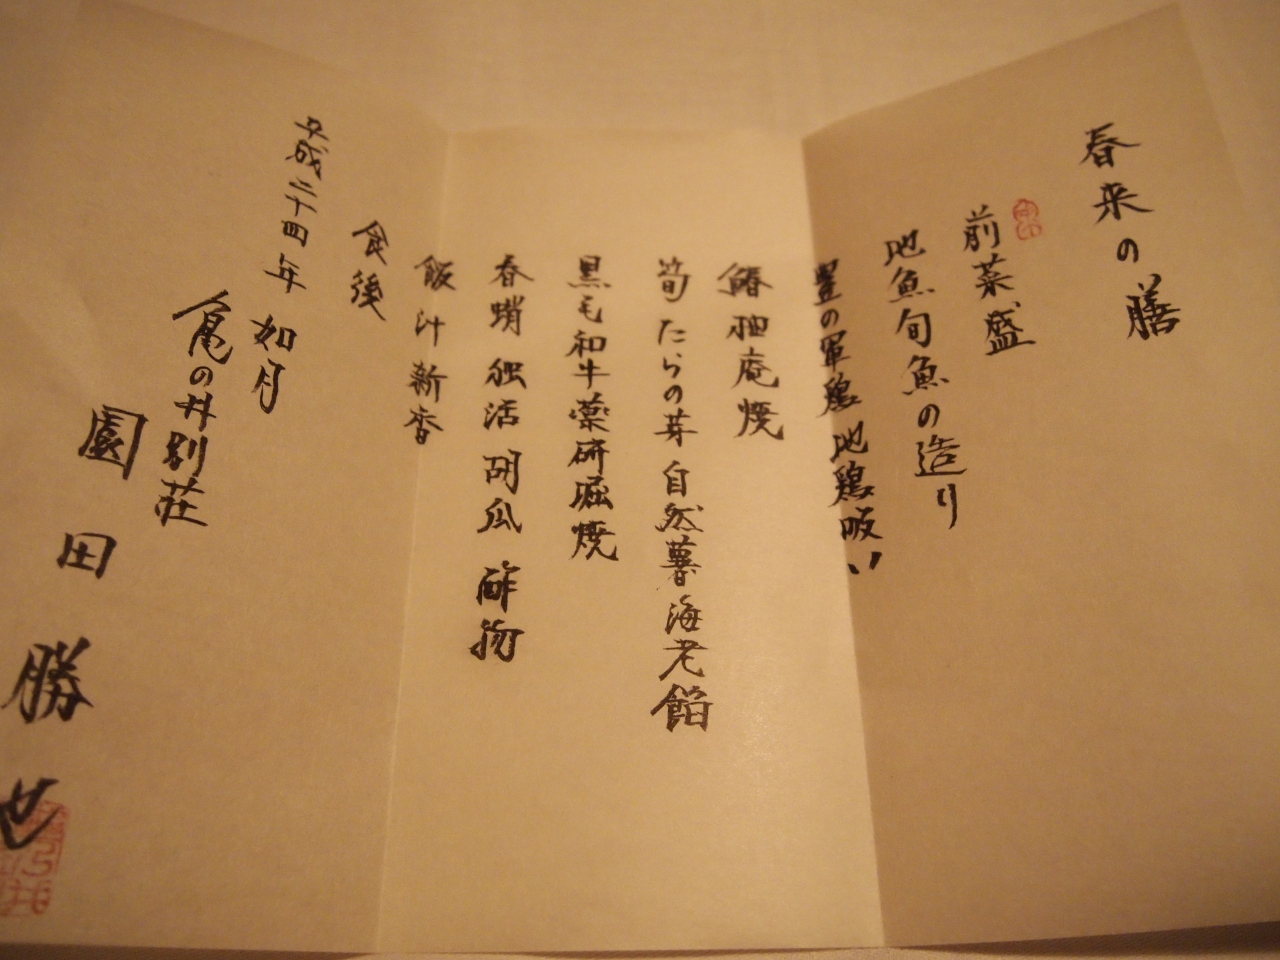 春来の膳
前菜盛
地魚旬魚の造り
豊の軍鶏 地鶏吸い
鰆柚庵焼
筍 たらの芽 自然薯 海老餡
黒毛和牛薬研堀焼
春蛸 独活 胡瓜 酢物
飯 汁 新香
食後
平成二十四年 如月
亀の井別荘
園田勝也